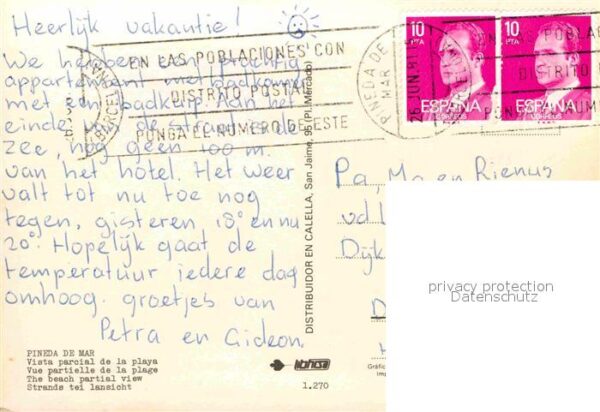 Heerlijk vakantie!
We hebben een prachtig
appartement met badkamer
met een badkuip. Aan het
einde v. de straat is de
zee, nog geen 100 m.
van het hotel. Het weer
valt tot nu toe nog
tegen, gisteren 18° en nu
20°. Hopelijk gaat de
temperatuur iedere dag
omhoog. groetjes van
Petra en Gideon.
PINEDA DE MAR
Vista parcial de la playa
Vue partielle de la plage
The beach partial view
Strands tei lansicht
1.270
DISTRIBUIDOR EN CALELLA, San Jaime, 95 (Pl. Mercado)
EN LAS POBLACIONES CON
DISTRITO POSTAL
PONGA EL NUMERO DE ESTE
BARCEL
PINEDA DE
MAR
26 JUN 81
10
PTA
ESPAÑA
CORREOS
10
PTA
ESPAÑA
CORREOS
EN LAS POBLA
DISTRITO
PONGA NUMER
Pa, Ma en Rienus
vd
Dijk
D
Gráfic
Imp
privacy protection
Datenschutz